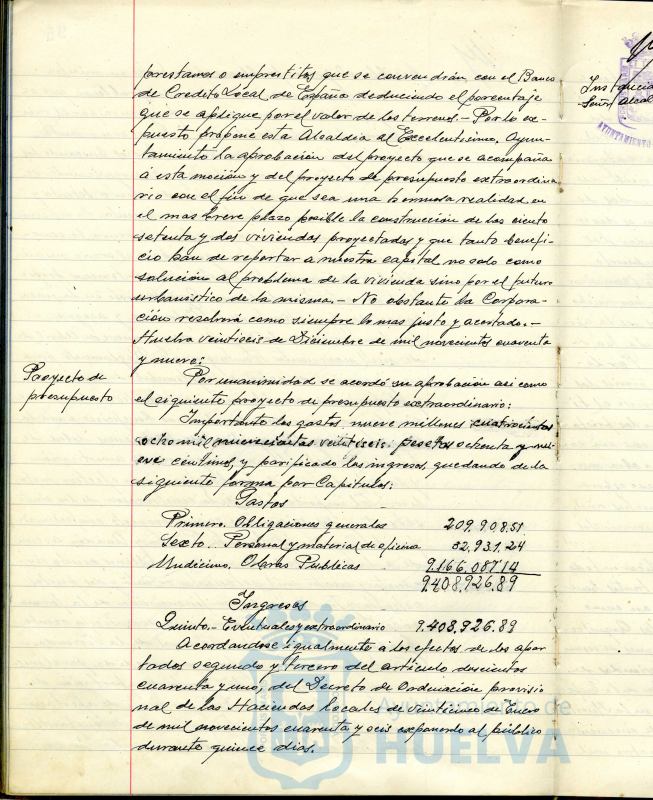 prestamos o emprestitos que se convendrán con el Banco
de Credito Local de España deduciendo el porcentaje
que se aplique por el valor de los terrenos.- Por lo ex-
puesto propone esta Alcaldia al Excelentisimo. Ayun-
tamiento la aprobación del proyecto que se acompaña
á esta moción y del proyecto de presupuesto extraordina
rio con el fin de que sea una hermosa realidad en
el mas breve plazo posible la construcción de las ciento
setenta y dos viviendas proyectadas y que tanto benefi-
cio han de reportar a nuestra capital no solo como
solución al problema de la vivienda sino por el futuro
urbanistico de la misma.- No obstante la Corpora-
ción resolverá como siempre lo mas justo y acertado.-
Huelva veintiseis de Diciembre de mil novecientos cuarenta
y nueve:
Proyecto de
presupuesto
Por unanimidad se acordó su aprobación asi como
el siguiente proyecto de presupuesto extraordinario:
Importante los gastos nueve millones cuatrocientas
ocho mil novecientas veintiseis pesetas ochenta y nu-
eve centimos, y parificado los ingresos, quedando de la
siguiente forma por Capitulos:
Gastos
Primero. Obligaciones generales 209.908.51
Sexto.. Personal y material de oficina 32.931.24
Undécimo. Obras Publicas 9.166.087.14
9.408.926.89
Ingresos
Quinto.- Eventuales y extraordinario 9.408.926.89
Acordandose igualmente á los efectos de los apar
tados segundo y tercero del articulo doscientos
cuarenta y uno, del Decreto de Ordenación provisio
nal de las Haciendas locales de veinticinco de Enero
de mil novecientos cuarenta y seis exponerlo al público
durante quince dias.
Instancia
Señor Alcal
AYUNTAMIENTO
Ayuntamiento de
HUELVA